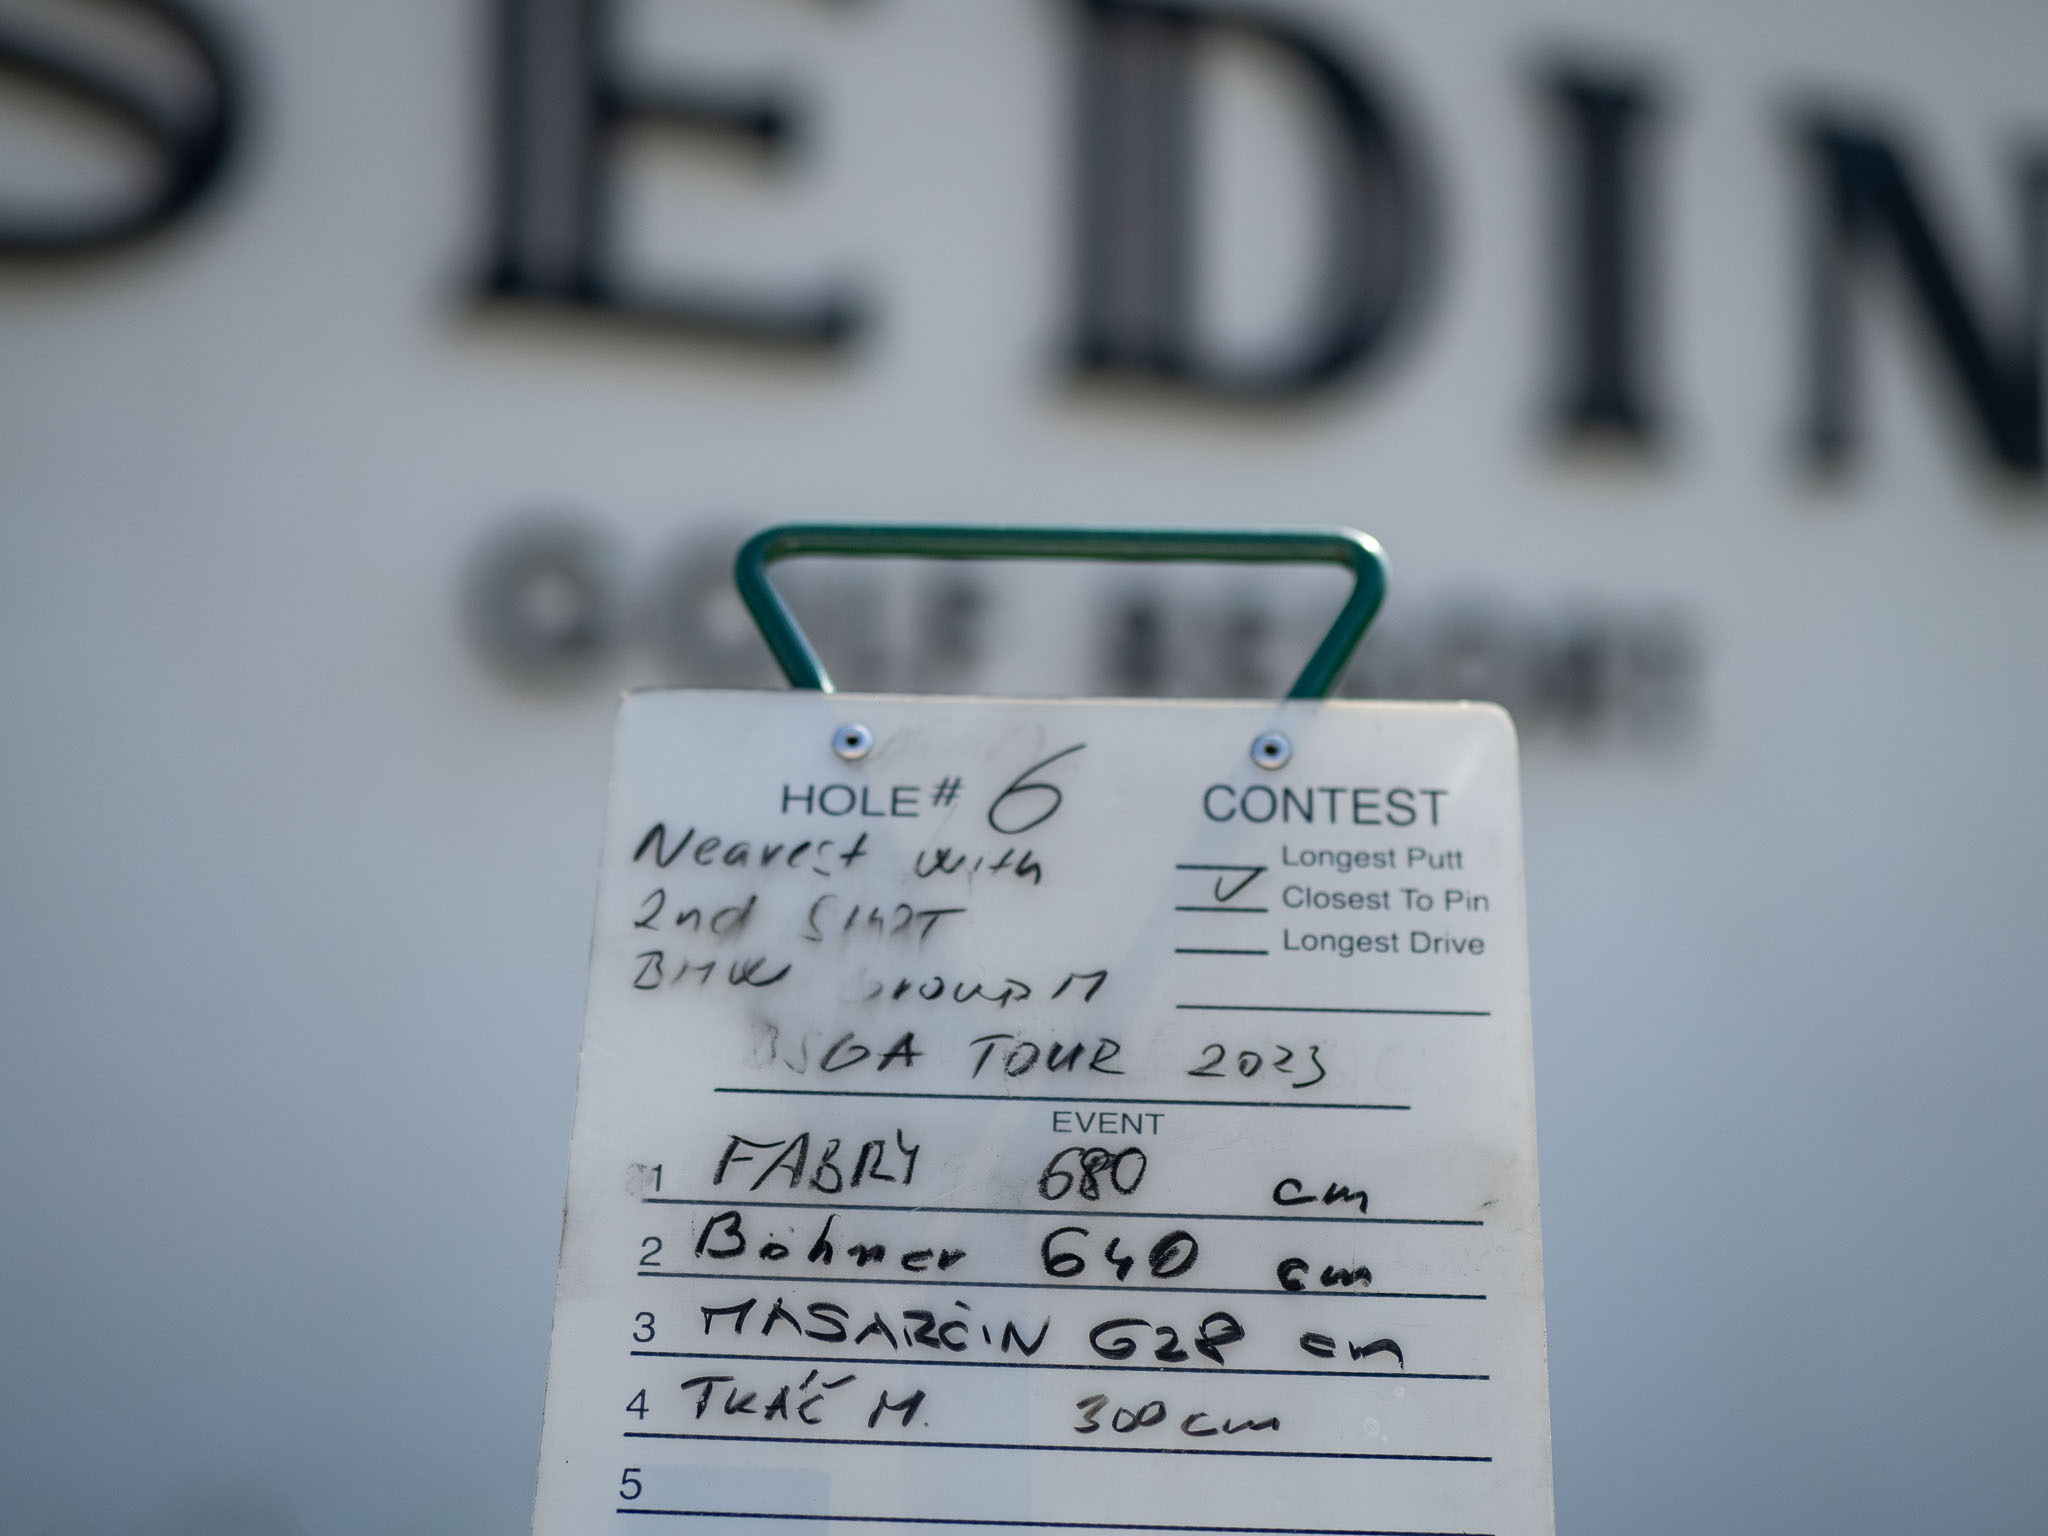 EDIN
GOLF RESORT
HOLE # 6
CONTEST
Nearest with
2nd SHOT
BMW Group M
BSGA TOUR 2023
Longest Putt
✓ Closest To Pin
Longest Drive
EVENT
1 FABRY 680 cm
2 Böhmer 640 cm
3 MASARČIN 628 cm
4 TKÁČ M. 300 cm
5